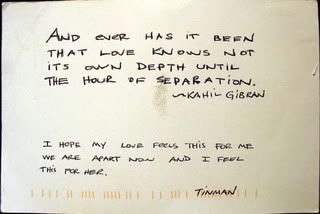 AND EVER HAS IT BEEN
THAT LOVE KNOWS NOT
ITS OWN DEPTH UNTIL
THE HOUR OF SEPARATION.
~KAHIL GIBRAN
I HOPE MY LOVE FEELS THIS FOR ME
WE ARE APART NOW AND I FEEL
THIS FOR HER.
TINMAN